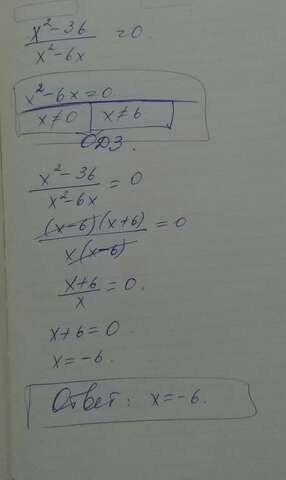 x²-36 / x²-6x = 0.
x²-6x=0.
x≠0 | x≠6
ОДЗ.
x²-36 / x²-6x = 0
(x-6)(x+6) / x(x-6) = 0
x+6 / x = 0.
x+6=0
x=-6.
Ответ: x=-6.